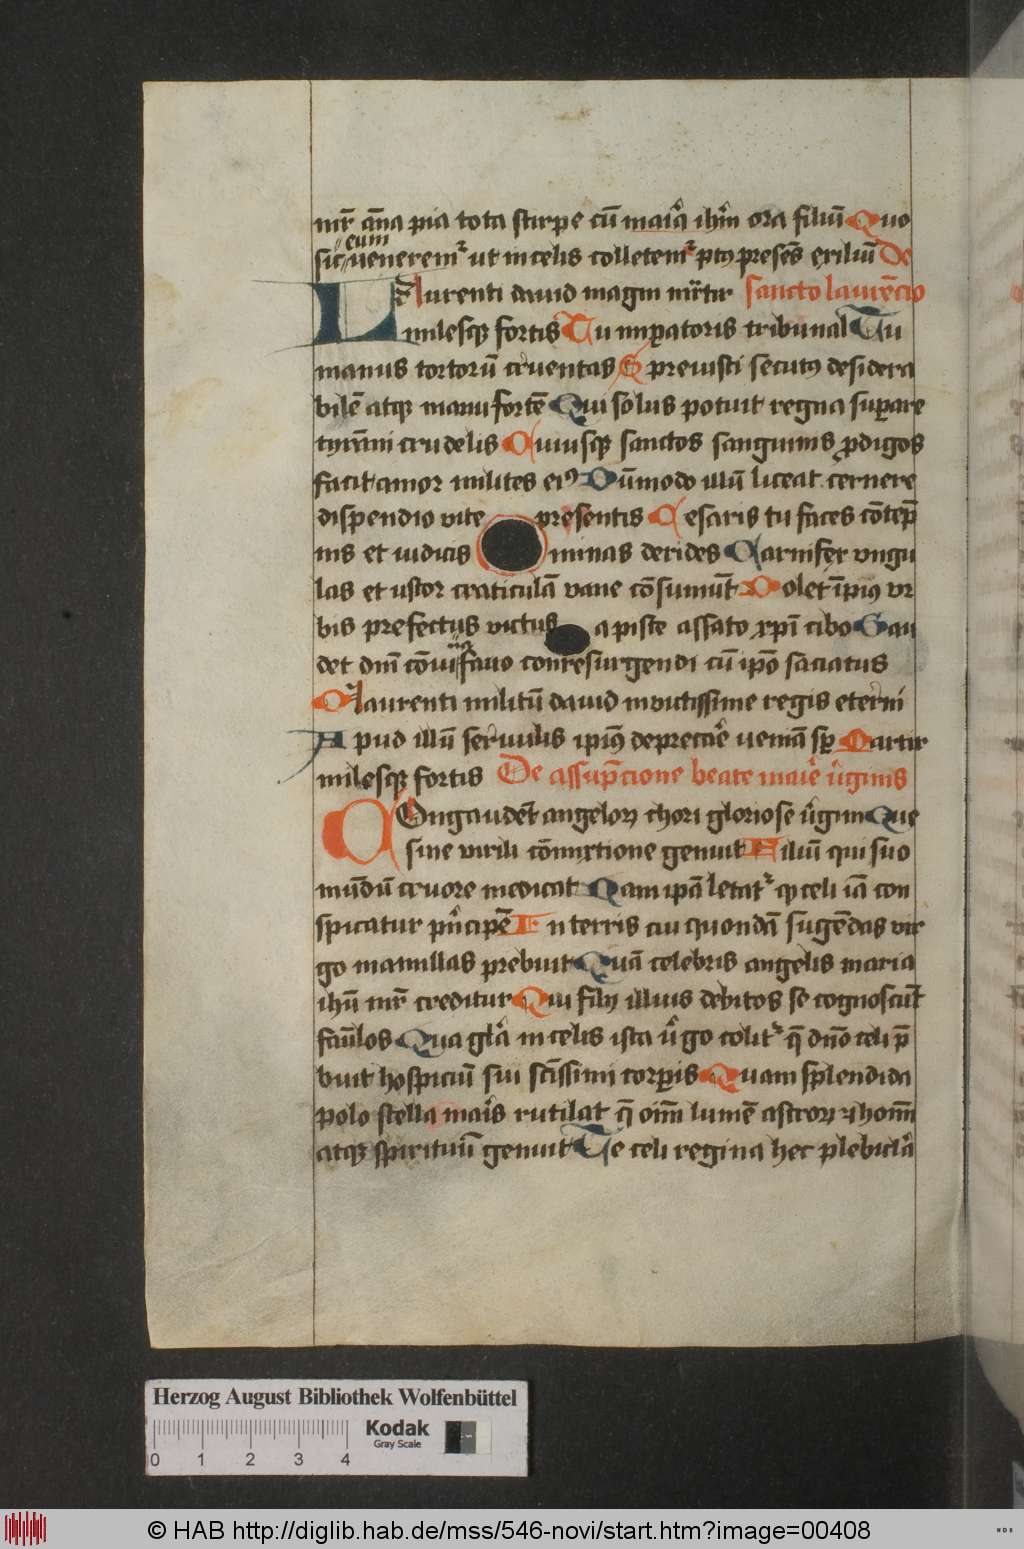 mr̄ an̄a pia tota stirpe cū maiͣ ih̄m ora filiū Quo
eum
sic venerem̄ ut in celis colletem̄ ptꝫ presen̄s exiliū De
Laurenti dauid magni mr̄tir sancto laurēcio
milesqꝫ fortis Tu imꝑatoris tribunal Tu
manus tortorū cruentas Sprevisti secutꝰ desidera
bilē atqꝫ manu fortē Qui solus potuit regna suꝑare
tyrāni crudelis Cuiusqꝫ sanctos sanguinis ꝓdigos
facit amor milites eiꝰ Dūmodo illū liceat cernere
dispendio vite presentis Cesaris tu fasces cōtēp
nis et iudicis minas derides Carnifex vngu
las et ustor craticulā vane cōsumūt Dolet īpiꝰ vr
bis prefectus victus a pisce assato xp̄i cibo Gau
det dn̄i cōviua fauo conresurgendi cū ipō saciatus
O laurenti militū dauid inuictissime regis eterni
Apud illū seruulis ipiꝰ deprecāe veniā sꝑ Martir
milesqꝫ fortis De assūpcione beate maīe v̄ginis
Congaudēt angelorꝫ chori gloriose v̄gini Que
sine virili cōmixtione genuit Filiū qui suo
mūdū cruore medicat Nam ipā letat͛ qꝫ celi iā con
spicatur pn̄cipē In terris cui quondā sugēdas vir
go mamillas prebuit Quā celebris angelis maria
ih̄u mr̄ creditur Qui filij illius debitos se cognoscūt
fāulos Qua glā in celis ista v̄go colit͛ q̄ dn̄o celi p̄
buit hospiciū sui sc̄issimi corꝑis Quam splendida
polo stella maīs rutilat q̄ oīm lumē astrorꝫ ⁊ hoīm
atqꝫ spirituū genuit Te celi regina hec plebiclā
Herzog August Bibliothek Wolfenbüttel
Kodak
Gray Scale
0 1 2 3 4
© HAB http://diglib.hab.de/mss/546-novi/start.htm?image=00408